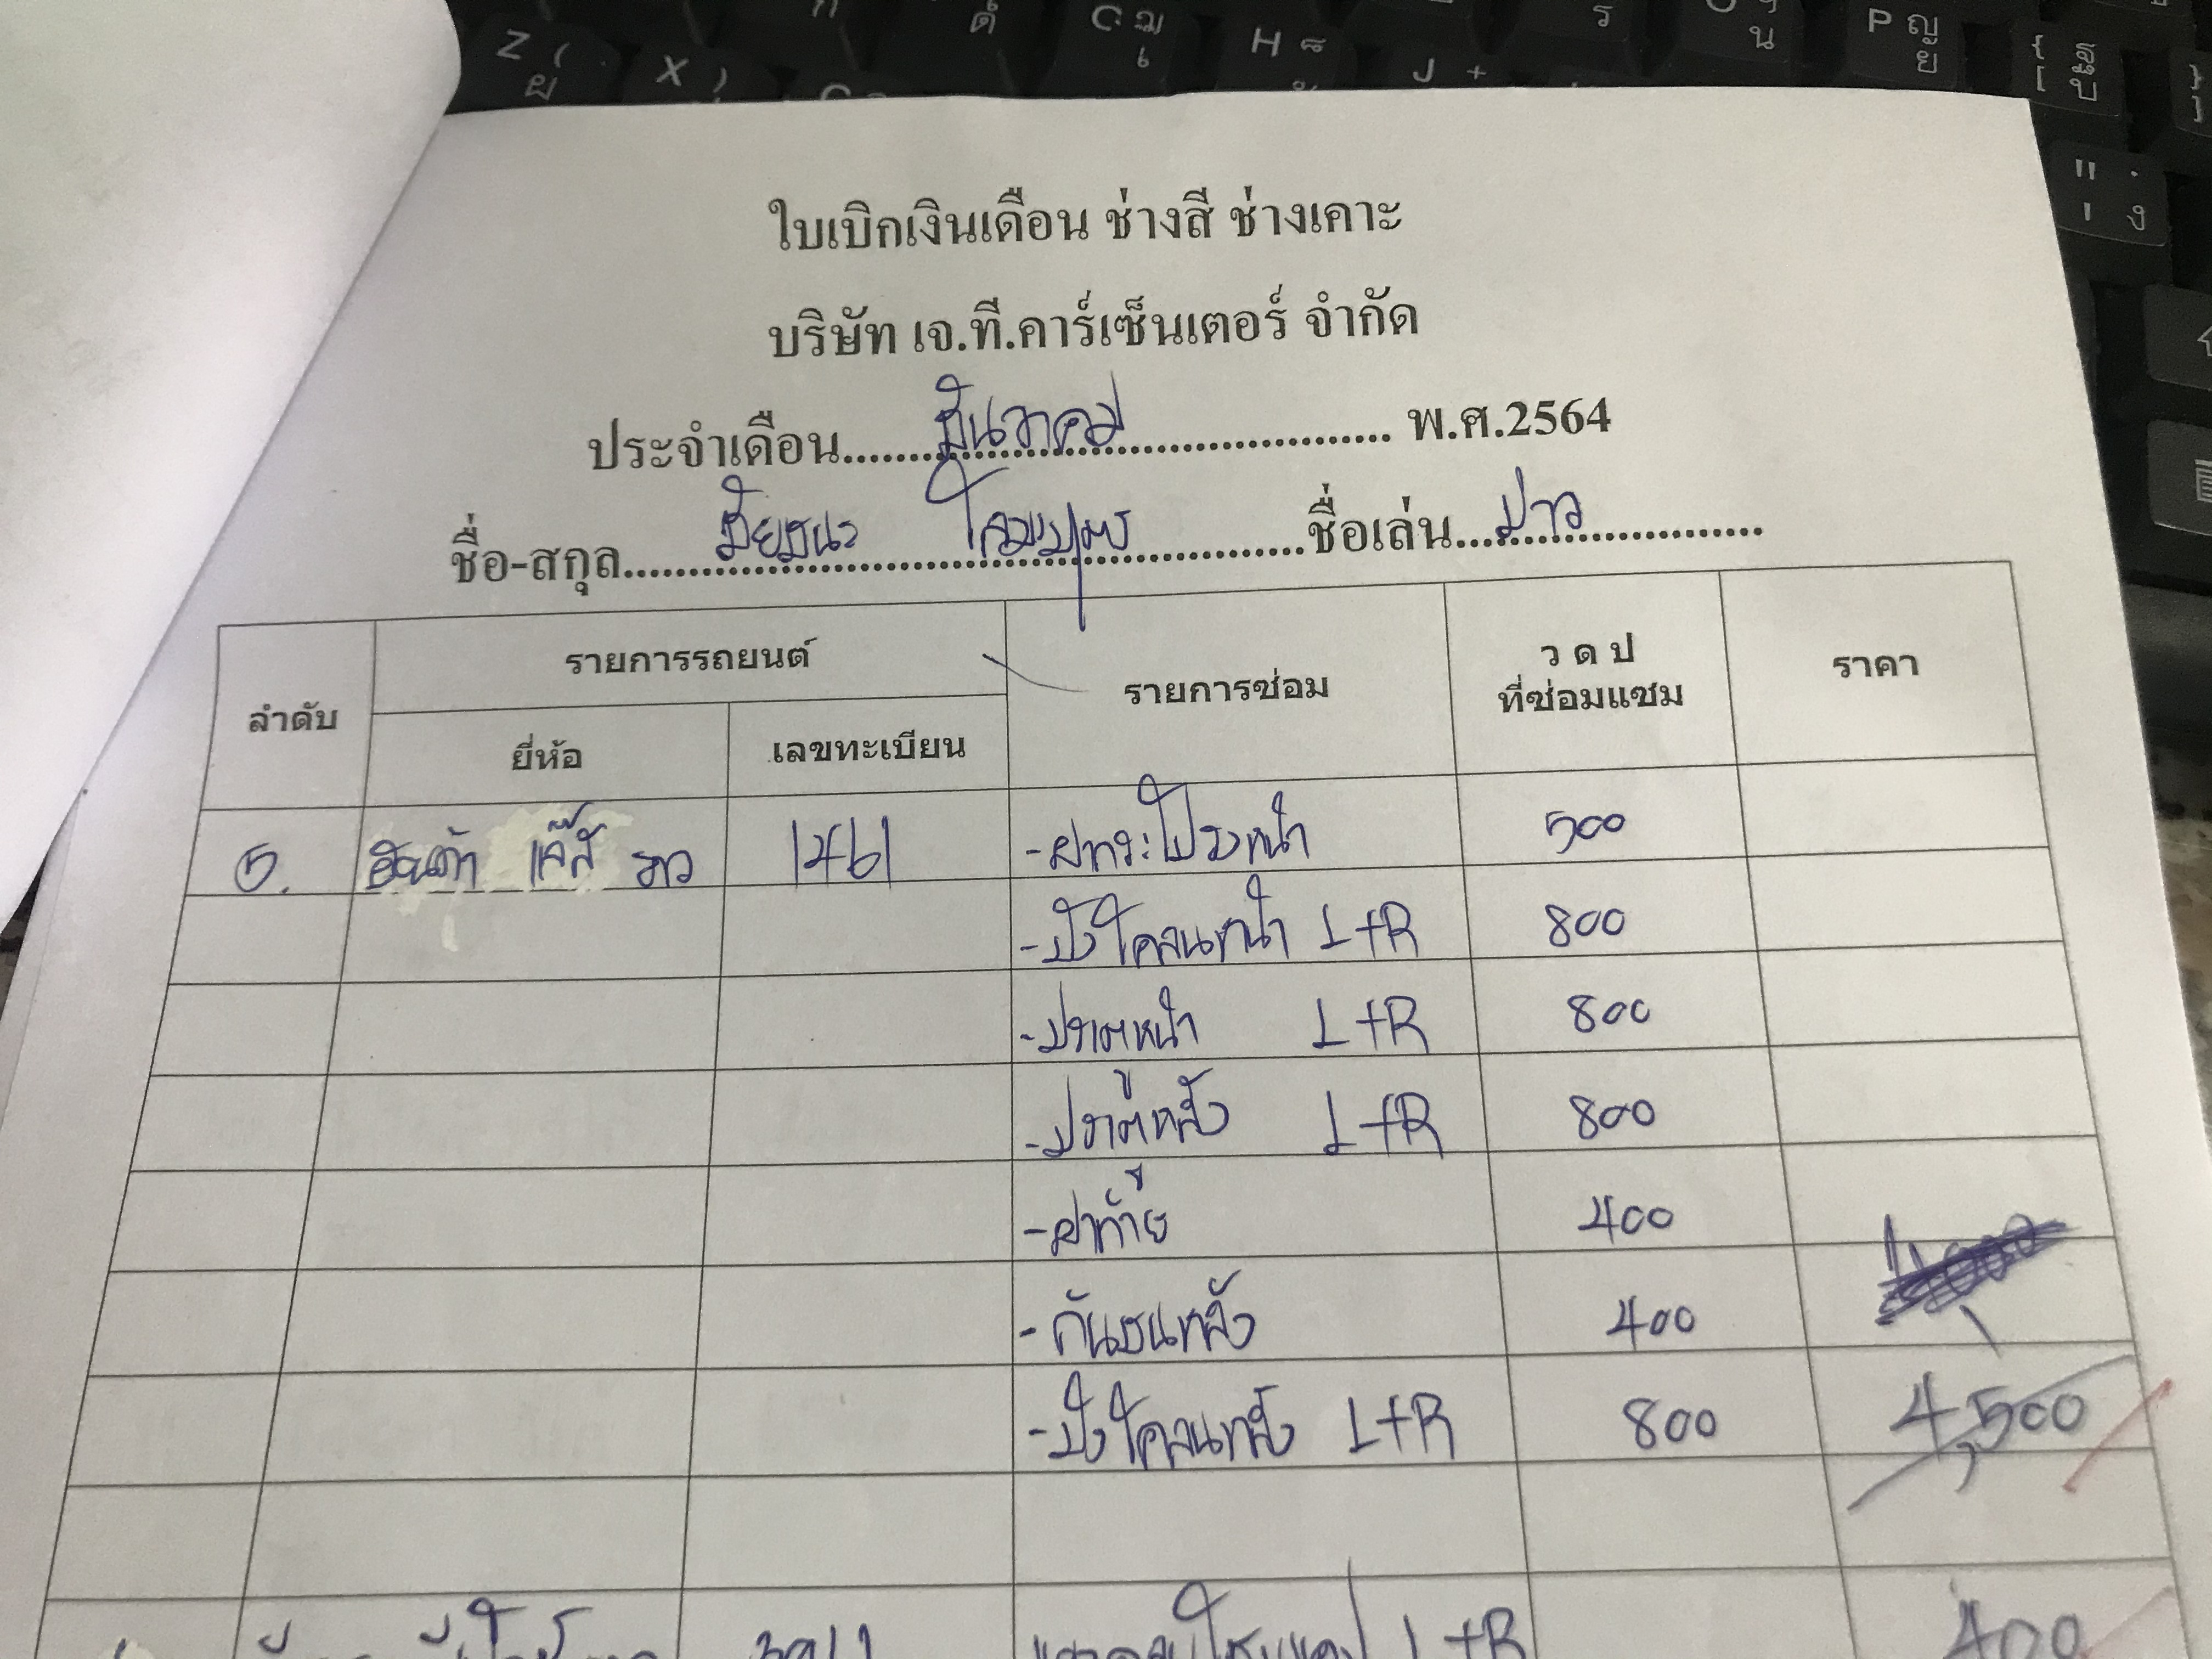 ใบเบิกเงินเดือน ช่างสี ช่างเคาะ
บริษัท เจ.ที.คาร์เซ็นเตอร์ จำกัด
ประจำเดือน ธันวาคม พ.ศ.2564
ชื่อ-สกุล ชื่อเล่น บ่าว
ลำดับ รายการรถยนต์ รายการซ่อม ว ด ป ที่ซ่อมแซม ราคา
ยี่ห้อ เลขทะเบียน
5. ฮอนด้า แจ๊ส ขาว 1461 -ฝากระโปรงหน้า 500
-บังโคลนหน้า L+R 800
-ประตูหน้า L+R 800
-ประตูหลัง L+R 800
-ฝาท้าย 400
-กันชนหลัง 400
-บังโคลนหลัง L+R 800 4,500
L+R 400
Z ( ย
X )
C ฌ เ
H
J +
P ญ ย
" .
' ง